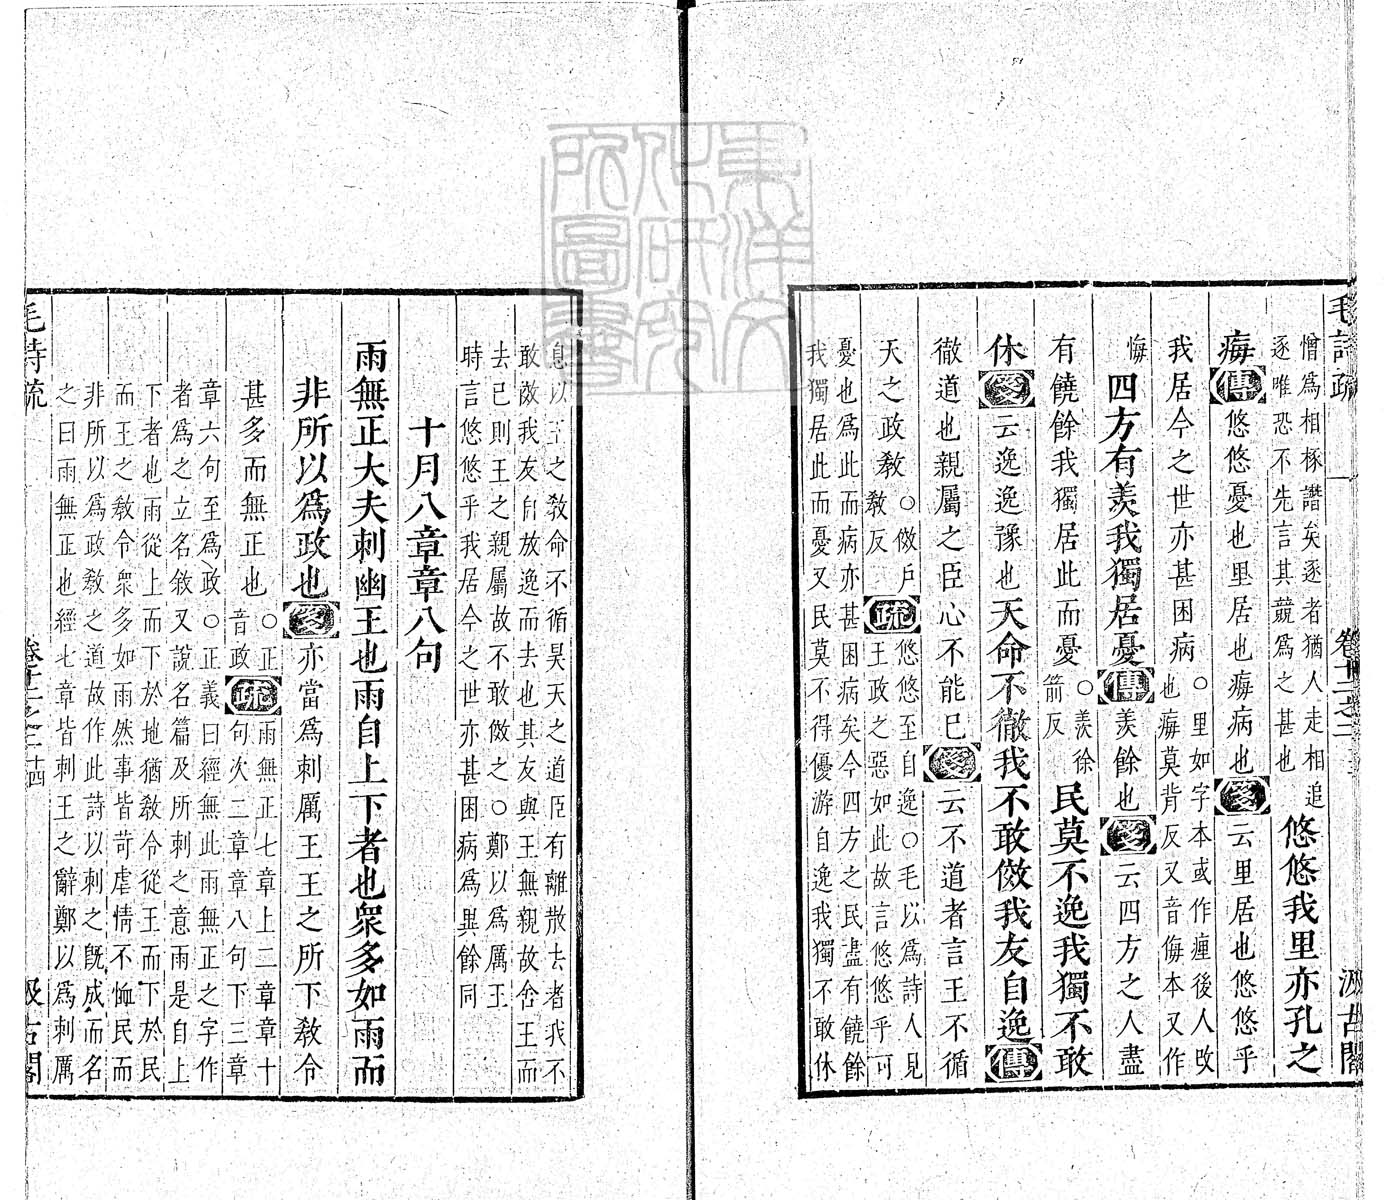 毛詩疏
卷十二之二
汲古閣
憎爲相椓譖矣逐者猶人走相追
逐唯恐不先言其競爲之甚也
悠悠我里亦孔之
痗傳悠悠憂也里居也痗病也箋云里居也悠悠乎
我居今之世亦甚困病
○里如字本或作瘇後人改
也痗莫背反又音侮本又作
悔
四方有羨我獨居憂傳羨餘也箋云四方之人盡
有饒餘我獨居此而憂
○羨徐
箭反
民莫不逸我獨不敢
休箋云逸逸豫也天命不徹我不敢傚我友自逸傳
徹道也親屬之臣心不能已箋云不道者言王不循
天之政敎
○傚戶
敎反
疏
悠悠至自逸○毛以爲詩人見
王政之惡如此故言悠悠乎可
憂也爲此而病亦甚困病矣今四方之民盡有饒餘
我獨居此而憂又民莫不得優游自逸我獨不敢休
息以王之敎命不循昊天之道臣有離散去者我不
敢傚我友自放逸而去也其友與王無親故舍王而
去已則王之親屬故不敢傚之○鄭以爲厲王
時言悠悠乎我居今之世亦甚困病爲異餘同
十月八章章八句
雨無正大夫刺幽王也雨自上下者也衆多如雨而
非所以爲政也箋亦當爲刺厲王王之所下敎令
甚多而無正也
○正
音政
疏
雨無正七章上二章章十
句次二章章八句下三章
章六句至爲政○正義曰經無此雨無正之字作
者爲之立名敘又說名篇及所刺之意雨是自上
下者也雨從上而下於地猶敎令從王而下於民
而王之敎令衆多如雨然事皆苛虐情不恤民而
非所以爲政敎之道故作此詩以刺之旣成而名
之曰雨無正也經七章皆刺王之辭鄭以爲刺厲
毛詩疏
卷十二之二
十四
汲古閣